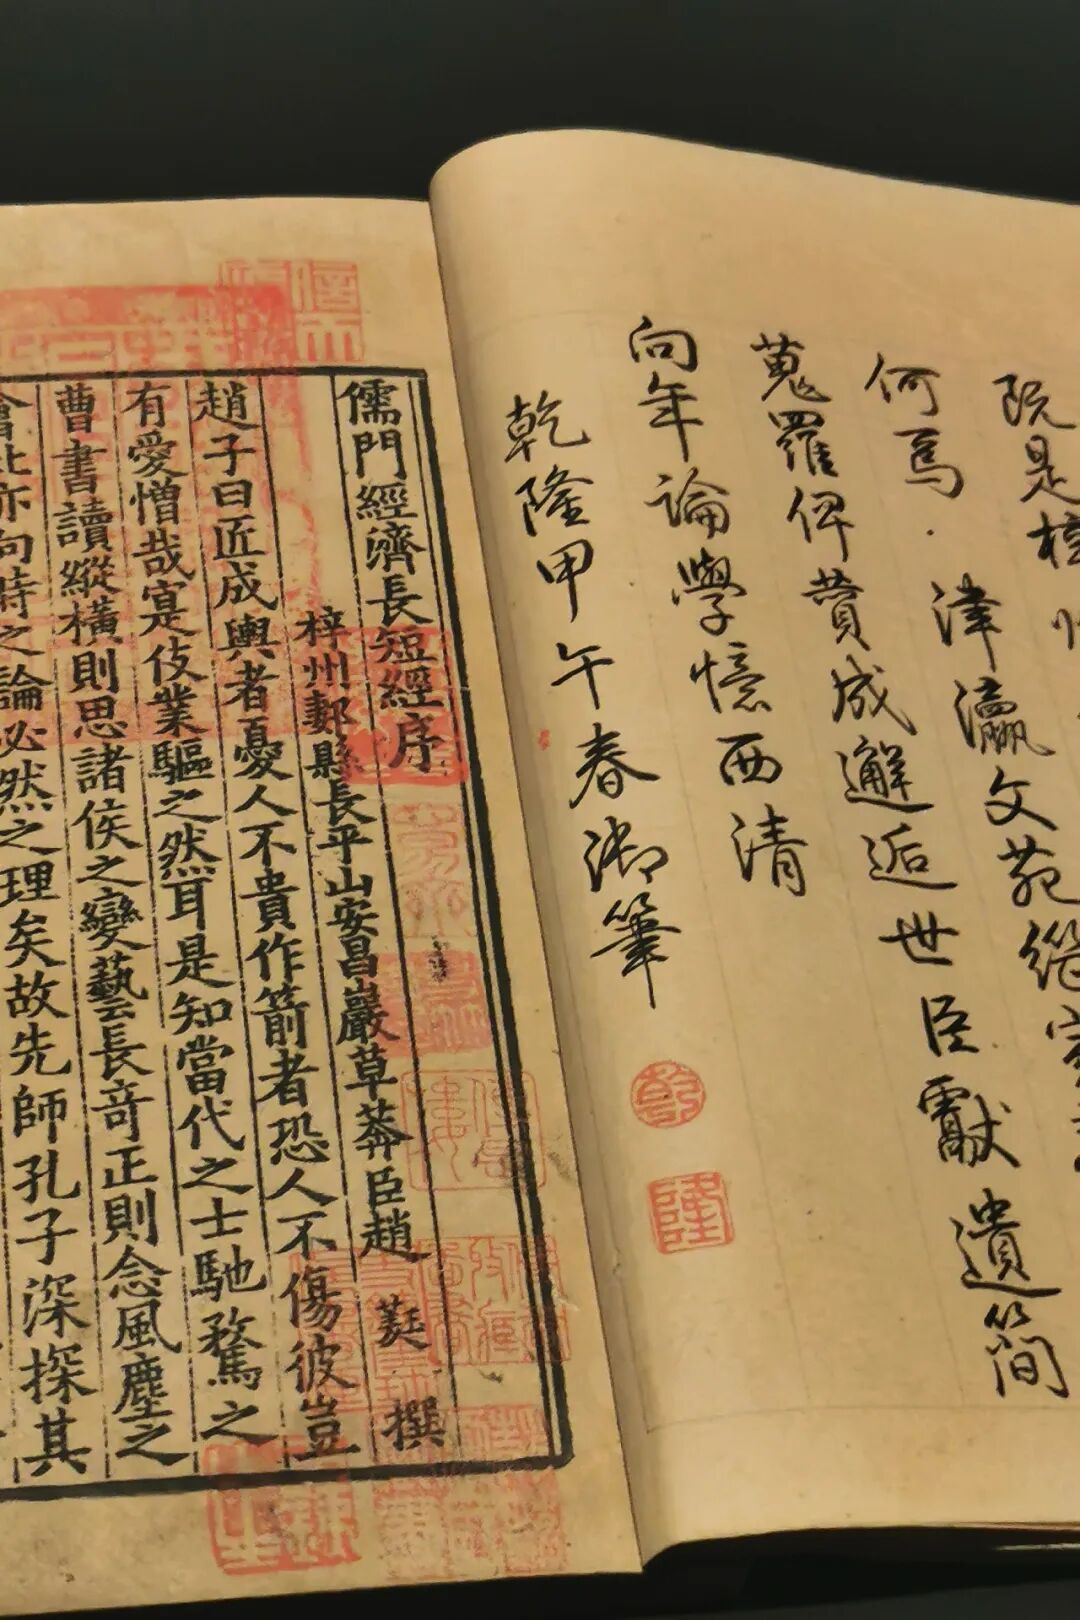 是
何焉津瀛文苑
蒐羅俾贊成邂逅世臣獻遺簡
向年論學憶西清
乾隆甲午春御筆
乾
隆
儒門經濟長短經序
梓州郪縣長平山安昌巖草莽臣趙 蕤 撰
趙子曰匠成輿者憂人不貴作箭者恐人不傷彼豈
有愛憎哉寔伎業驅之然耳是知當代之士馳騖之
曹書讀縱橫則思諸侯之變藝長竒正則念風塵之
會此亦向時之論必然之理矣故先師孔子深探其